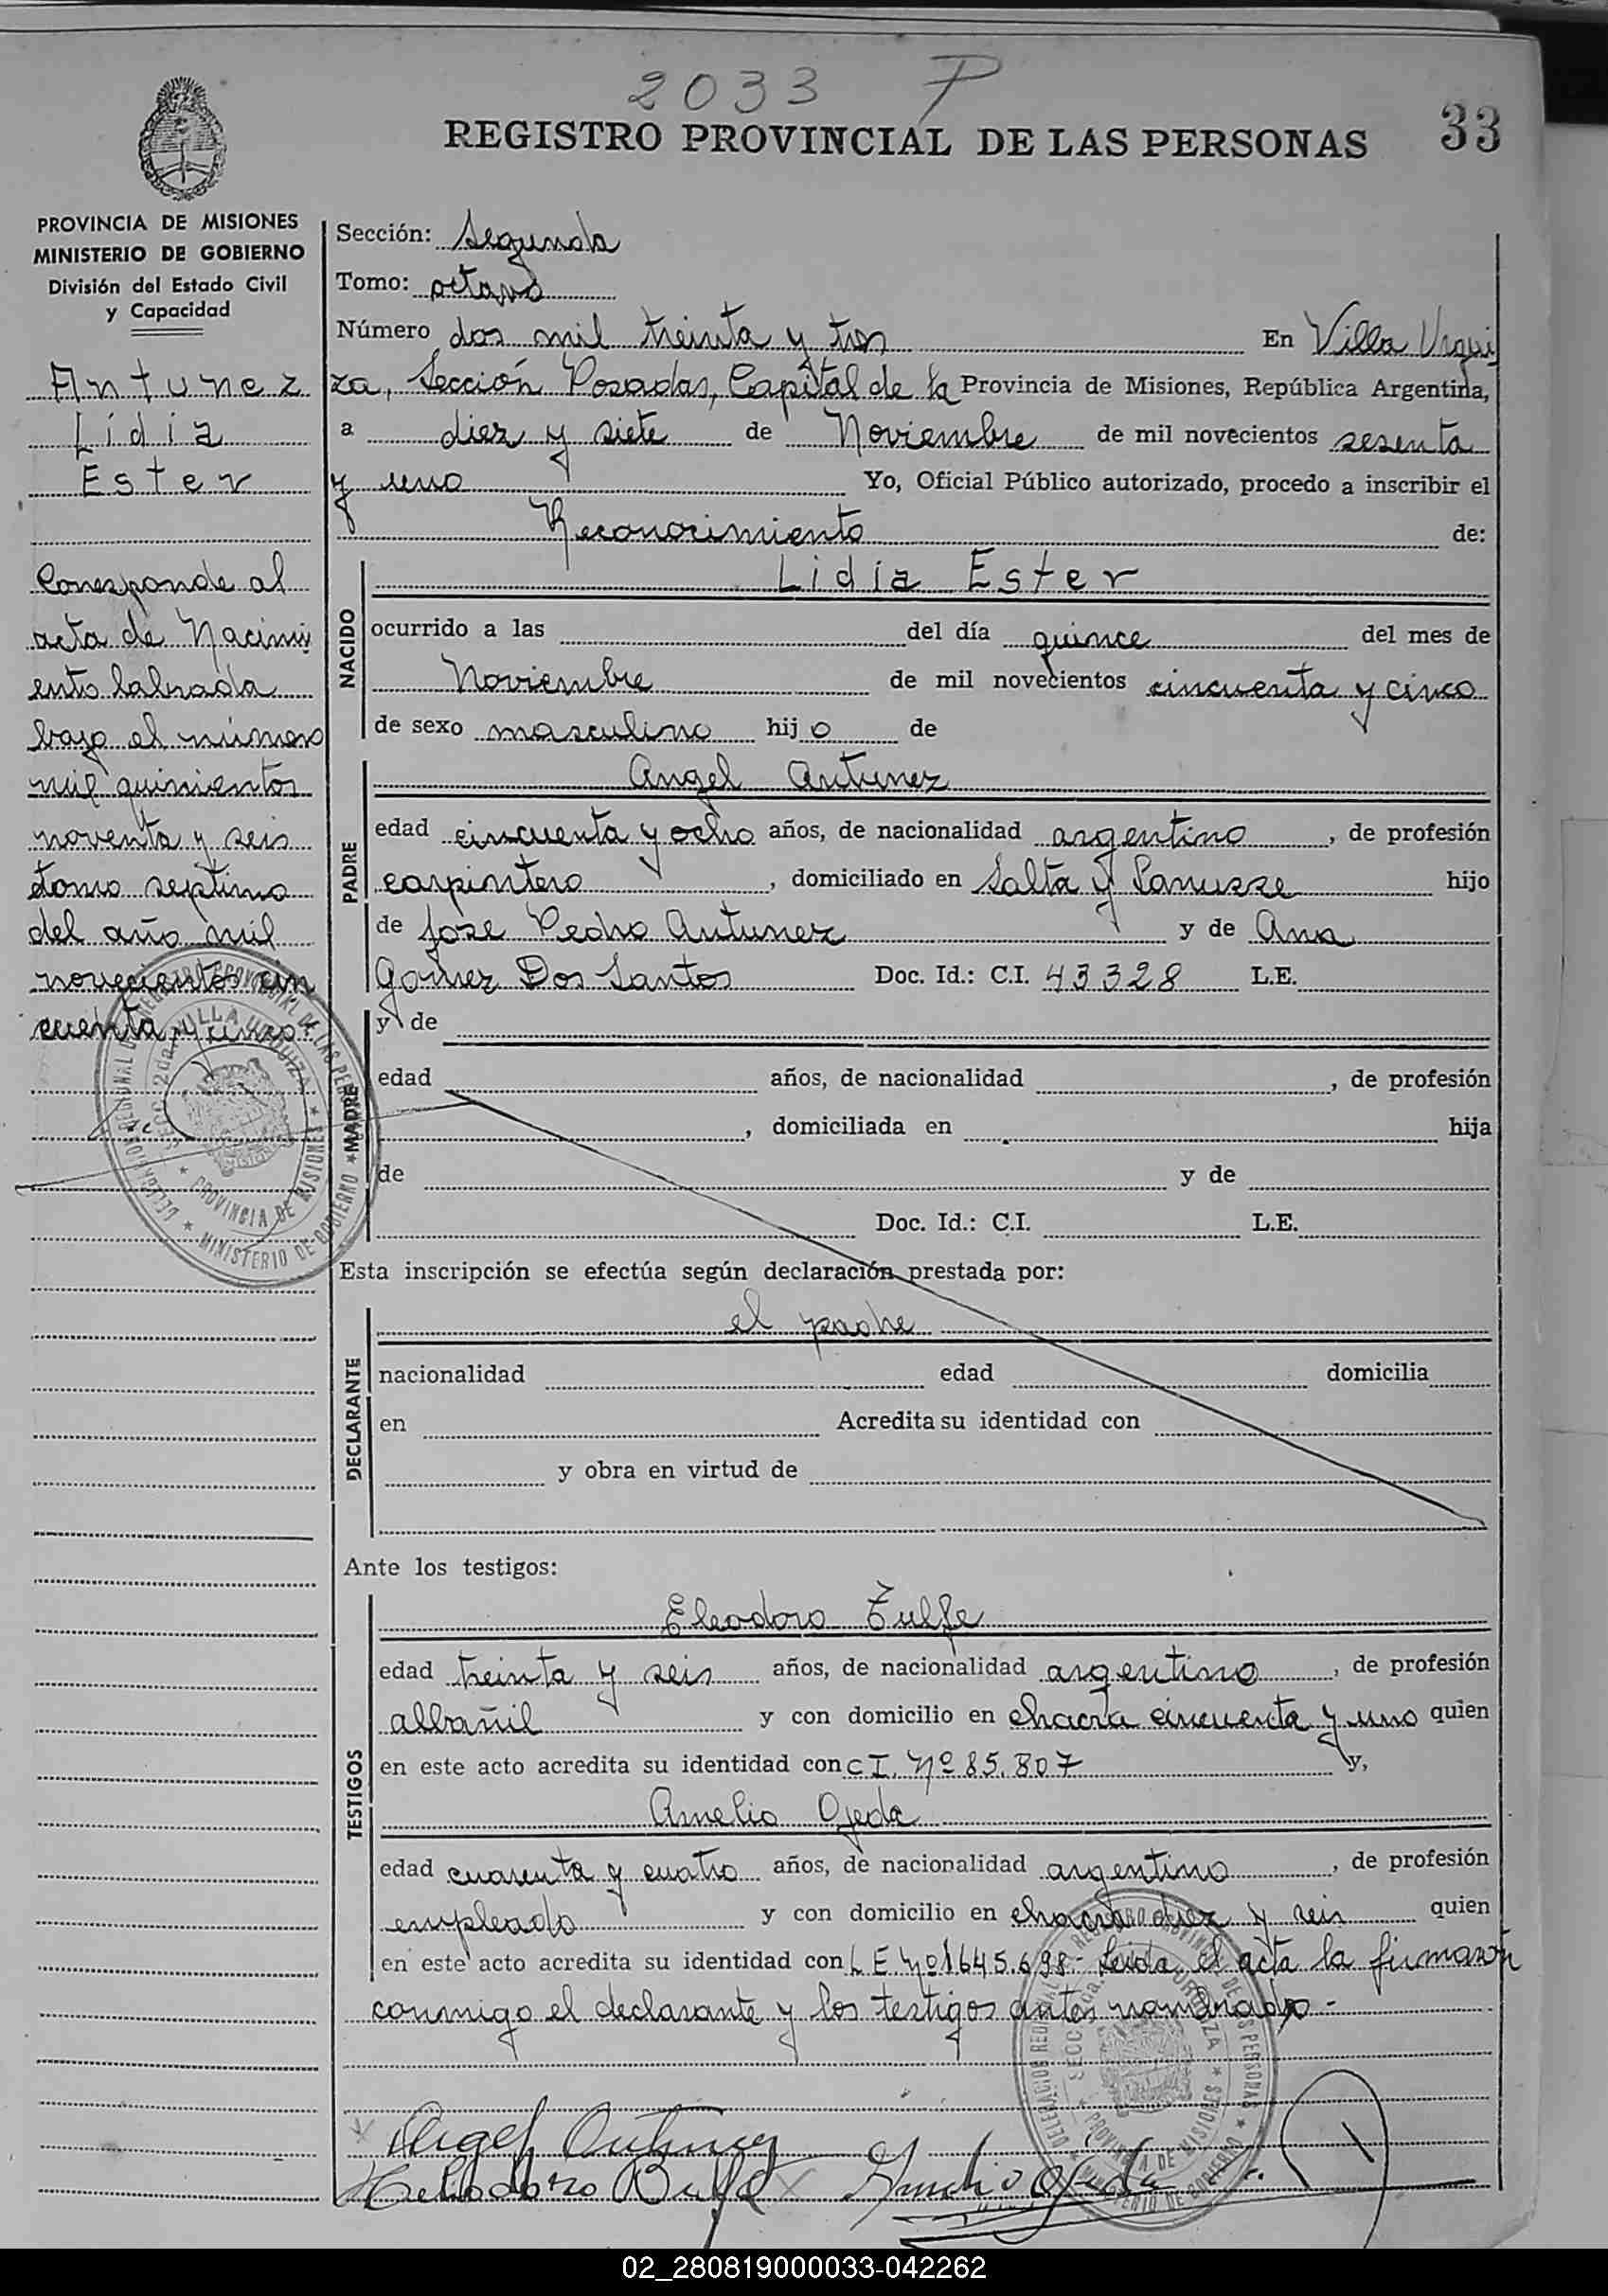 2033 P
REGISTRO PROVINCIAL DE LAS PERSONAS 33
PROVINCIA DE MISIONES
MINISTERIO DE GOBIERNO
División del Estado Civil
y Capacidad
Antunez
Lidia
Ester
Corresponde al
acta de Nacimi
ento labrada
bajo el número
mil quinientos
noventa y seis
tomo septimo
del año mil
novecientos cin
cuenta y cinco
Sección: Segunda
Tomo: octavo
Número dos mil treinta y tres En Villa Urqui
za, Sección Posadas, Capital de la Provincia de Misiones, República Argentina,
a diez y siete de Noviembre de mil novecientos sesenta
y uno Yo, Oficial Público autorizado, procedo a inscribir el
Reconocimiento de:
NACIDO
Lidia Ester
ocurrido a las del día quince del mes de
Noviembre de mil novecientos cincuenta y cinco
de sexo masculino hijo de
PADRE
Angel Antunez
edad cincuenta y ocho años, de nacionalidad argentino, de profesión
carpintero, domiciliado en Salta y Lanusse hijo
de Jose Pedro Antunez y de Ana
Gomez Dos Santos Doc. Id.: C.I. 43328 L.E.
MADRE
y de
edad años, de nacionalidad , de profesión
, domiciliada en hija
de y de
Doc. Id.: C.I. L.E.
Esta inscripción se efectúa según declaración prestada por:
DECLARANTE
el padre
nacionalidad edad domicilia
en Acredita su identidad con
y obra en virtud de
Ante los testigos:
TESTIGOS
Eleodoro
edad treinta y seis años, de nacionalidad argentino, de profesión
albañil y con domicilio en chacra cincuenta y uno quien
en este acto acredita su identidad con CI. Nº 85.807 y,
Amelio Ojeda
edad cuarenta y cuatro años, de nacionalidad argentino, de profesión
empleado y con domicilio en chacra diez y seis quien
en este acto acredita su identidad con LE Nº 1645.698.- Leida el acta la firmaron
conmigo el declarante y los testigos antes nombrados.-
Angel Antunez
Ojeda
DELEGACION REGIONAL DEL REGISTRO PROVINCIAL DE LAS PERSONAS
SECC. 2da. VILLA URQUIZA
PROVINCIA DE MISIONES
MINISTERIO DE GOBIERNO
02_280819000033-042262